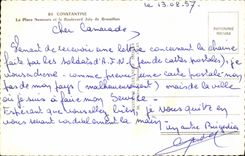 le 13.08.57
85 CONSTANTINE
La Place Nemours et le Boulevard Joly de Brésillon
Cher Camarade,
Venant de recevoir une lettre concernant la chaîne
faite par les soldats d'A.F.N. (jeu de cartes postales) je
vous envoie comme premier une carte postale non
pas de mon pays (malheureusement) mais de la ville
où je suis à faire mon Service.
Espérant que vous allez bien, je vous quitte en
vous serrant cordialement la main.
Un autre